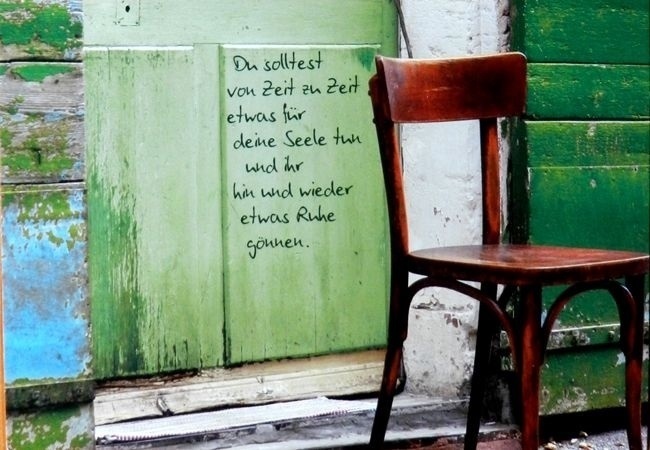 Du solltest
von Zeit zu Zeit
etwas für
deine Seele tun
und ihr
hin und wieder
etwas Ruhe
gönnen.